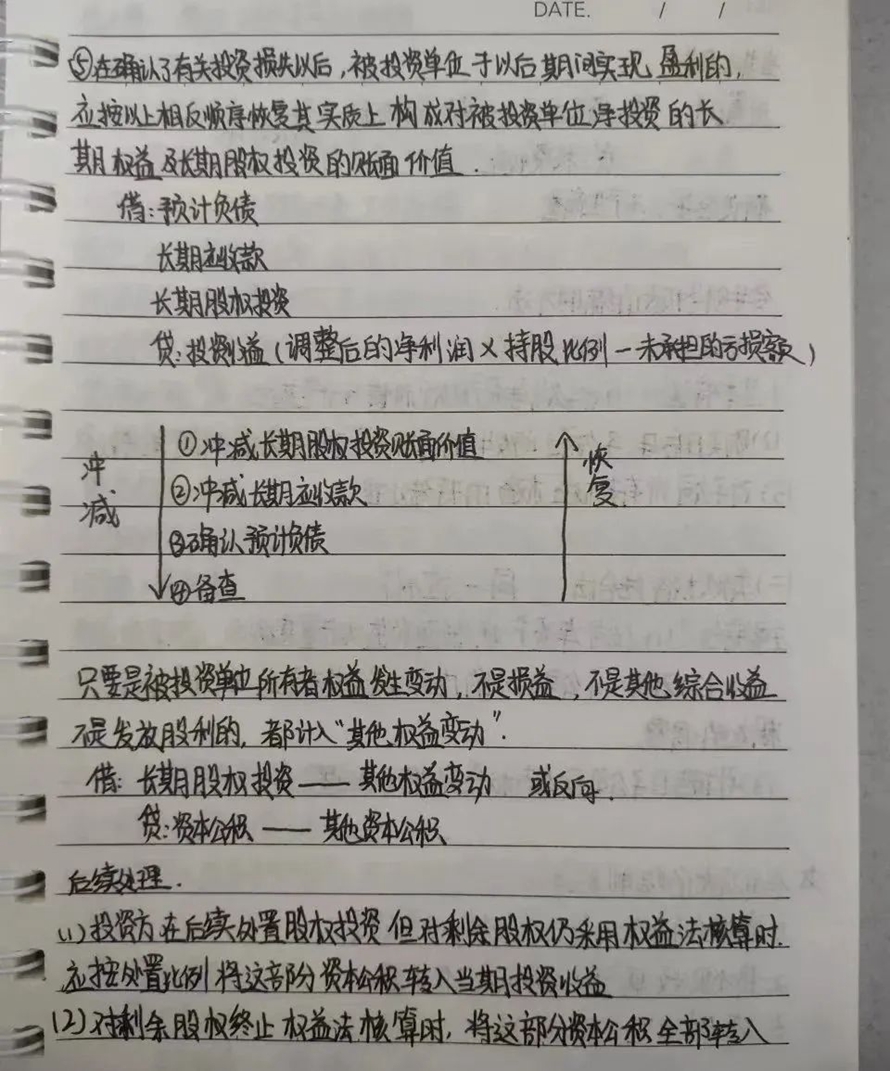 DATE. / /
⑤在确认了有关投资损失以后,被投资单位于以后期间实现盈利的,
应按以上相反顺序恢复其实质上构成对被投资单位净投资的长
期权益及长期股权投资的账面价值.
借:预计负债
长期应收款
长期股权投资
贷:投资收益(调整后的净利润×持股比例-未承担的亏损额)
冲减
①冲减长期股权投资账面价值
②冲减长期应收款
③确认预计负债
④备查
恢复
只要是被投资单位所有者权益发生变动,不是损益,不是其他综合收益
不是发放股利的,都计入“其他权益变动”.
借:长期股权投资——其他权益变动 或反向.
贷:资本公积——其他资本公积
后续处理.
(1)投资方在后续处置股权投资但对剩余股权仍采用权益法核算时.
应按处置比例将这部分资本公积转入当期投资收益
(2)对剩余股权终止权益法核算时,将这部分资本公积全部转入